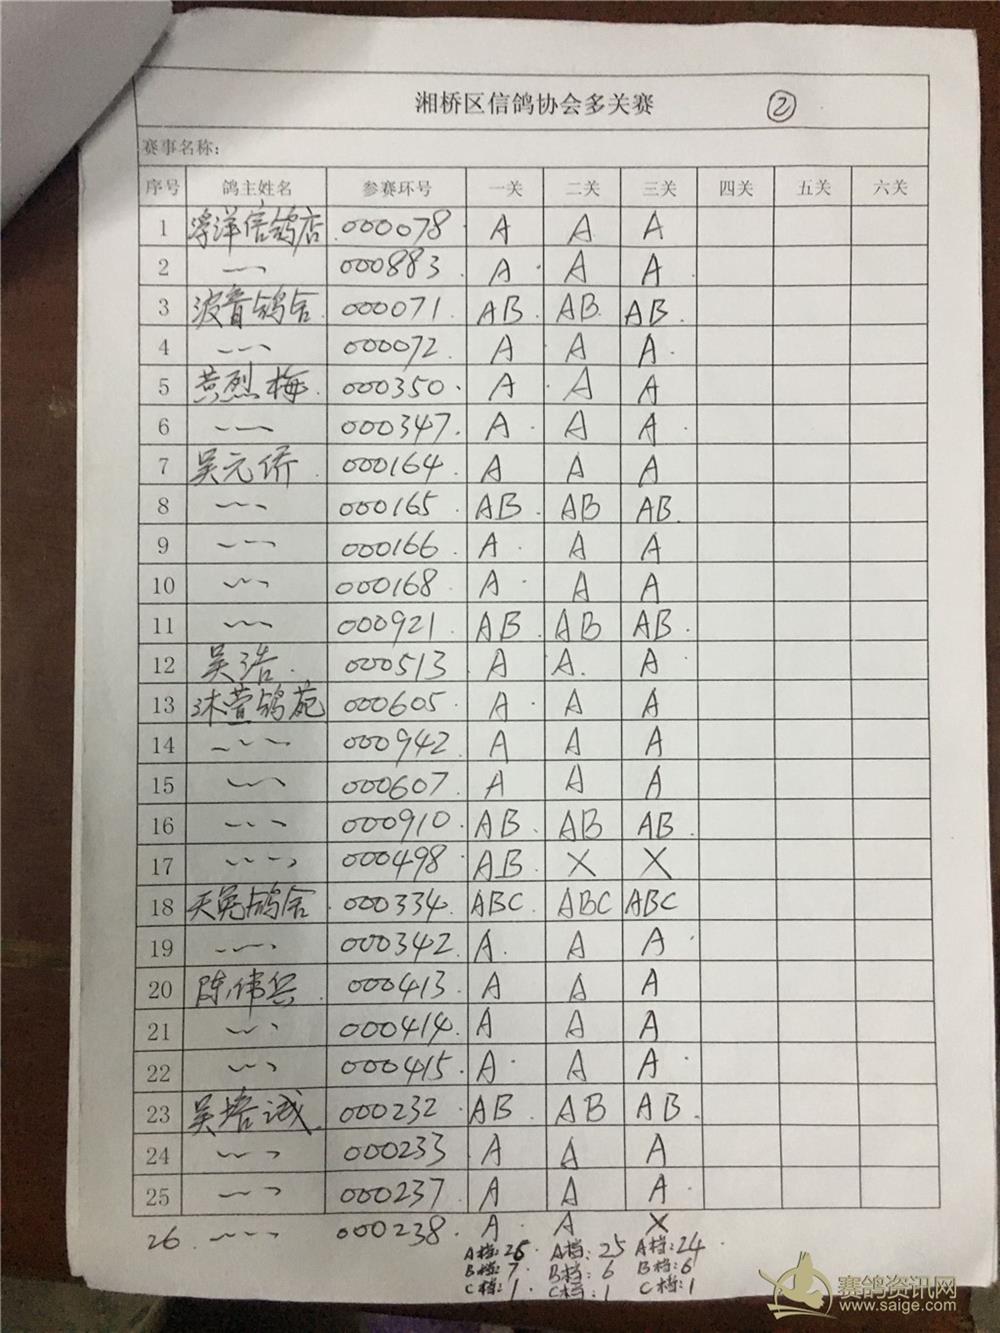 湘桥区信鸽协会多关赛 ②
赛事名称:
序号 鸽主姓名 参赛环号 一关 二关 三关 四关 五关 六关
1 浮洋信鸽店 000078 A A A
2 〃 000883 A A A
3 波音鸽舍 000071 AB AB AB
4 〃 000072 A A A
5 黄烈梅 000350 A A A
6 〃 000347 A A A
7 吴元侨 000164 A A A
8 〃 000165 AB AB AB
9 〃 000166 A A A
10 〃 000168 A A A
11 〃 000921 AB AB AB
12 吴浩 000513 A A A
13 沐萱鸽苑 000605 A A A
14 〃 000942 A A A
15 〃 000607 A A A
16 〃 000910 AB AB AB
17 〃 000498 AB X X
18 天苑鸽舍 000334 ABC ABC ABC
19 〃 000342 A A A
20 陈伟兵 000413 A A A
21 〃 000414 A A A
22 〃 000415 A A A
23 吴培诚 000232 AB AB AB
24 〃 000233 A A A
25 〃 000237 A A A
26 〃 000238 A A X
A档:26 A档:25 A档:24
B档:7 B档:6 B档:6
C档:1 C档:1 C档:1
赛鸽资讯网
www.saige.com